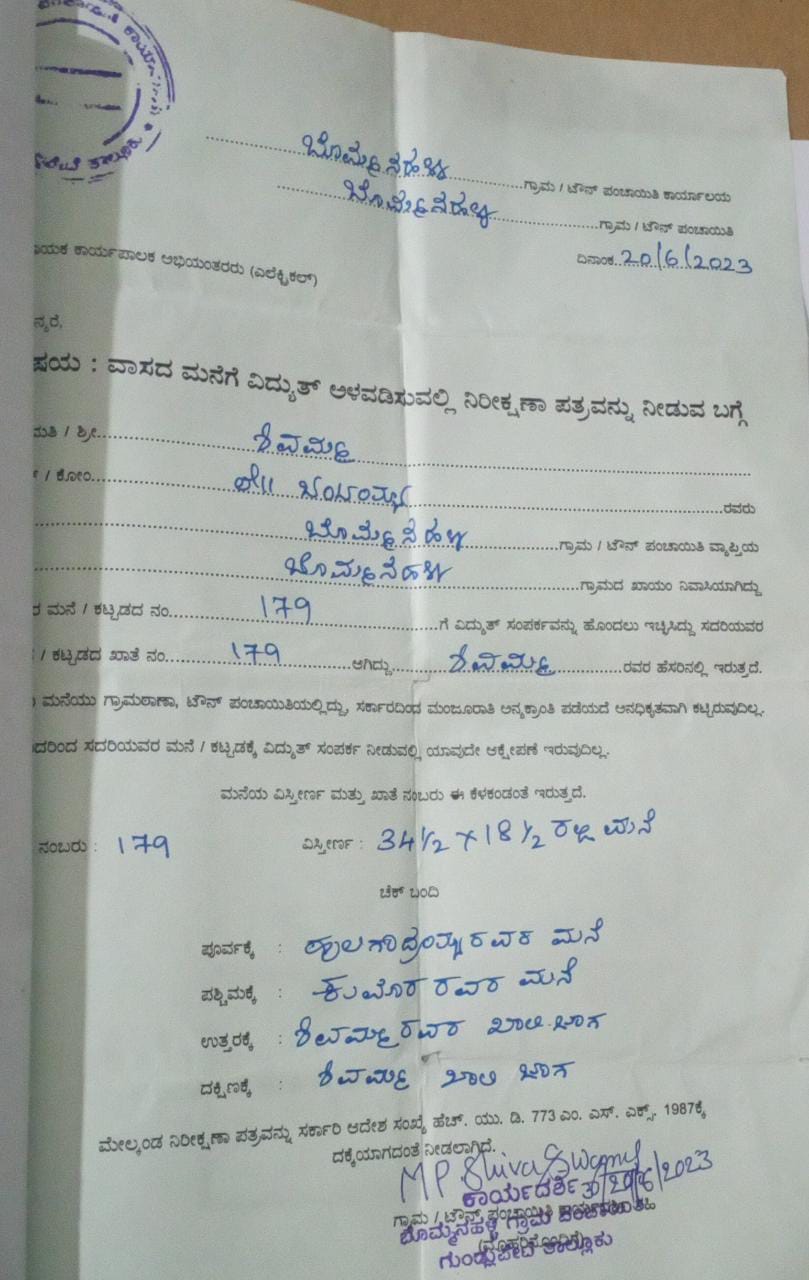 ಬೊಮ್ಮನಹಳ್ಳಿ ಗ್ರಾಮ / ಟೌನ್ ಪಂಚಾಯಿತಿ ಕಾರ್ಯಾಲಯ
ಬೊಮ್ಮನಹಳ್ಳಿ ಗ್ರಾಮ / ಟೌನ್ ಪಂಚಾಯಿತಿ
ದಿನಾಂಕ 20/6/2023
ಕಾರ್ಯಪಾಲಕ ಅಭಿಯಂತರರು (ಎಲೆಕ್ಟ್ರಿಕಲ್)
ನ್ಯರೆ,
ಷಯ : ವಾಸದ ಮನೆಗೆ ವಿದ್ಯುತ್ ಅಳವಡಿಸುವಲ್ಲಿ ನಿರೀಕ್ಷಣಾ ಪತ್ರವನ್ನು ನೀಡುವ ಬಗ್ಗೆ
ಮತಿ / ಶ್ರೀ ಶಿವಮ್ಮ
/ ಕೋಂ ಲೇ|| ರವರು
ಬೊಮ್ಮನಹಳ್ಳಿ ಗ್ರಾಮ / ಟೌನ್ ಪಂಚಾಯಿತಿ ವ್ಯಾಪ್ತಿಯ
ಬೊಮ್ಮನಹಳ್ಳಿ ಗ್ರಾಮದ ಖಾಯಂ ನಿವಾಸಿಯಾಗಿದ್ದು
ಮನೆ / ಕಟ್ಟಡದ ನಂ. 179 ಗೆ ವಿದ್ಯುತ್ ಸಂಪರ್ಕವನ್ನು ಹೊಂದಲು ಇಚ್ಛಿಸಿದ್ದು ಸದರಿಯವರ
/ ಕಟ್ಟಡದ ಖಾತೆ ನಂ. 179 ಆಗಿದ್ದು ಶಿವಮ್ಮ ರವರ ಹೆಸರಿನಲ್ಲಿ ಇರುತ್ತದೆ.
ಮನೆಯು ಗ್ರಾಮಠಾಣಾ, ಟೌನ್ ಪಂಚಾಯಿತಿಯಲ್ಲಿದ್ದು, ಸರ್ಕಾರದಿಂದ ಮಂಜೂರಾತಿ ಅನ್ಯಕ್ರಾಂತಿ ಪಡೆಯದೆ ಅನಧಿಕೃತವಾಗಿ ಕಟ್ಟಿರುವುದಿಲ್ಲ.
ದರಿಂದ ಸದರಿಯವರ ಮನೆ / ಕಟ್ಟಡಕ್ಕೆ ವಿದ್ಯುತ್ ಸಂಪರ್ಕ ನೀಡುವಲ್ಲಿ ಯಾವುದೇ ಆಕ್ಷೇಪಣೆ ಇರುವುದಿಲ್ಲ.
ಮನೆಯ ವಿಸ್ತೀರ್ಣ ಮತ್ತು ಖಾತೆ ನಂಬರು ಈ ಕೆಳಕಂಡಂತೆ ಇರುತ್ತದೆ.
ನಂಬರು : 179 ವಿಸ್ತೀರ್ಣ : 34 1/2 × 18 1/2 ಮನೆ
ಚೆಕ್ ಬಂದಿ
ಪೂರ್ವಕ್ಕೆ : ರವರ ಮನೆ
ಪಶ್ಚಿಮಕ್ಕೆ : ಕುಮಾರ ರವರ ಮನೆ
ಉತ್ತರಕ್ಕೆ : ಶಿವಮ್ಮರವರ ಖಾಲಿ ಜಾಗ
ದಕ್ಷಿಣಕ್ಕೆ : ಶಿವಮ್ಮ ಖಾಲಿ ಜಾಗ
ಮೇಲ್ಕಂಡ ನಿರೀಕ್ಷಣಾ ಪತ್ರವನ್ನು ಸರ್ಕಾರಿ ಆದೇಶ ಸಂಖ್ಯೆ ಹೆಚ್. ಯು. ಡಿ. 773 ಎಂ. ಎಸ್. ಎಕ್ಸ್. 1987ಕ್ಕೆ
ದಕ್ಕೆಯಾಗದಂತೆ ನೀಡಲಾಗಿದೆ.
M P Shiva Swamy
ಕಾರ್ಯದರ್ಶಿ
ಗ್ರಾಮ / ಟೌನ್ ಪಂಚಾಯಿತಿ
ಬೊಮ್ಮನಹಳ್ಳಿ ಗ್ರಾಮ ಪಂಚಾಯಿತಿ
ಗುಂಡ್ಲುಪೇಟೆ ತಾಲ್ಲೂಕು